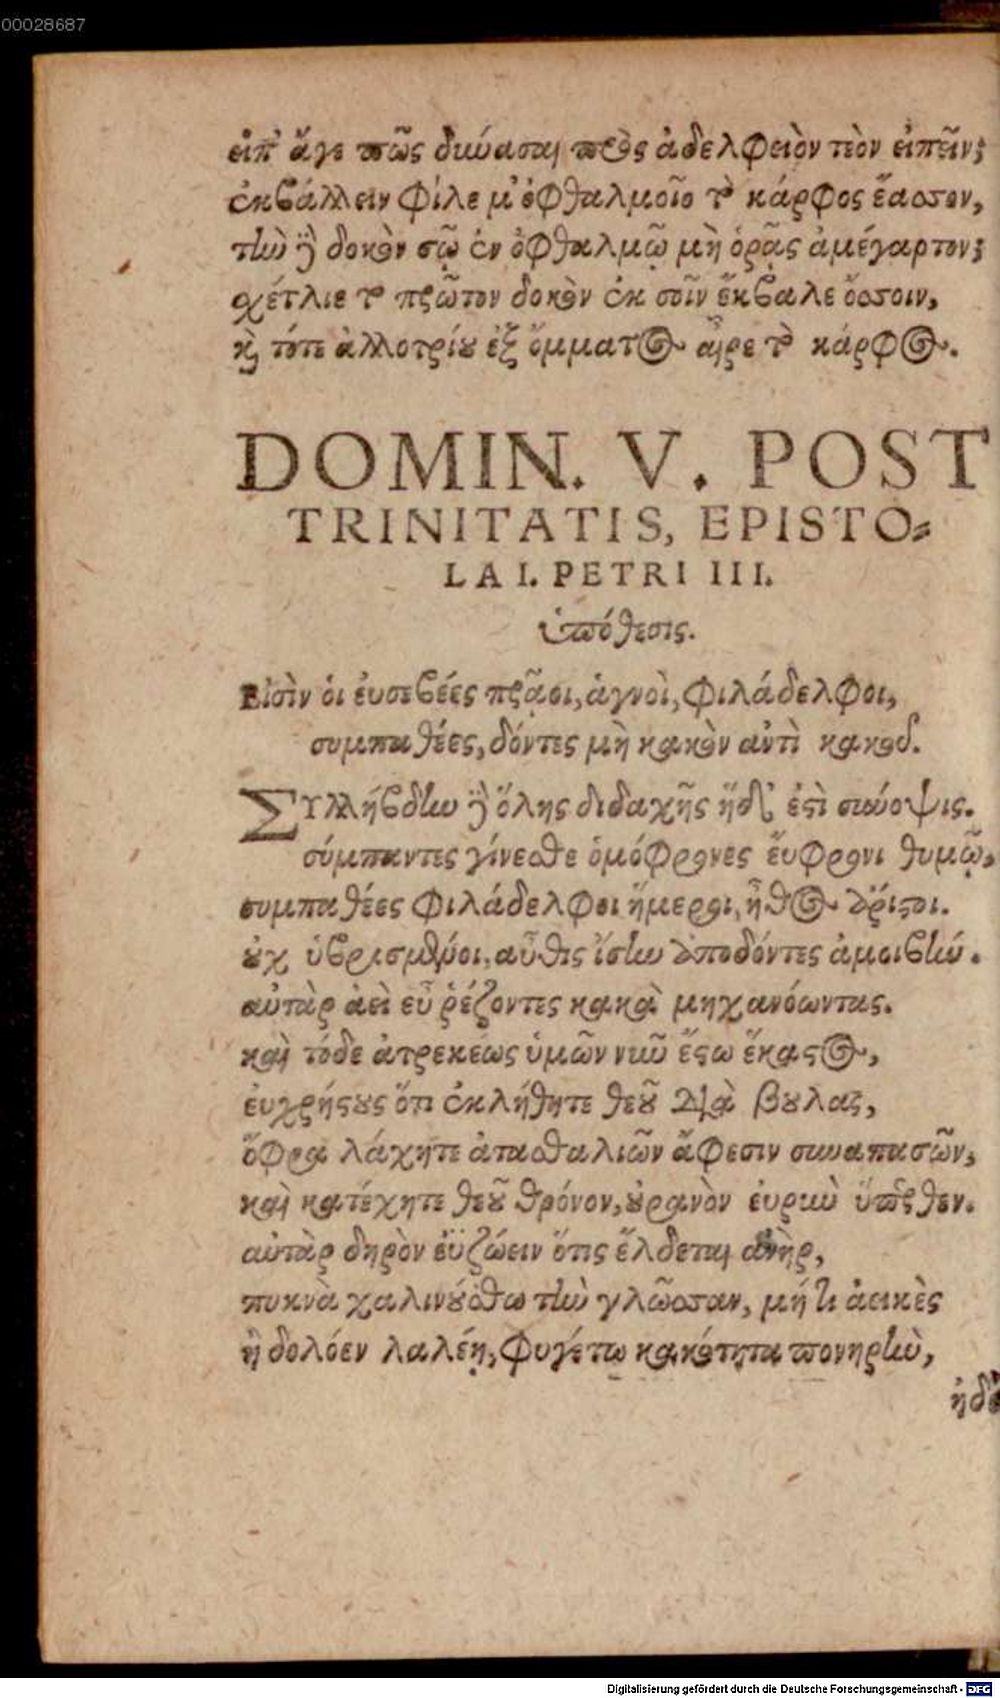 00028687
εἰπ' ἄγε πῶς δύνασαι πρὸς ἀδελφειὸν τεὸν εἰπεῖν;
ἐκβάλλειν φίλε μ' ὀφθαλμοῖο τὸ κάρφος ἔασσον,
τὴν δὲ δοκὸν σῷ ἐν ὀφθαλμῷ μὴ ὁρᾷς ἀμέγαρτον;
σχέτλιε τὸ πρῶτον δοκὸν ἐκ σοῖν ἔκβαλε ὄσσοιν,
καὶ τότε ἀλλοτρίου ἐξ ὄμματος αἶρε τὸ κάρφος.
DOMIN. V. POST
TRINITATIS, EPISTO-
LA I. PETRI III.
ὑπόθεσις.
Εἰσὶν οἱ ἐυσεβέες πρᾶοι, ἁγνοὶ, φιλάδελφοι,
συμπαθέες, δόντες μὴ κακὸν ἀντὶ κακοῦ.
ΣΥλλήβδην δὲ ὅλης διδαχῆς ἥδ' ἐστὶ σύνοψις.
σύμπαντες γίνεσθε ὁμόφρονες ἔυφρονι θυμῷ.
συμπαθέες φιλάδελφοι ἥμεροι, ἦθος ἄριστοι.
οὐχ ὑβρισμένοι, αὖθις ἴσην ἀποδόντες ἀμοιβήν.
αὐτὰρ ἀεὶ εὖ ῥέζοντες κακὰ μηχανόωντας.
καὶ τόδε ἀτρεκέως ὑμῶν νῦν ἔστω ἕκαστος,
ἐυχρήστους ὅτι ἐκλήθητε θεοῦ διὰ βουλας,
ὄφρα λάχητε ἀτασθαλιῶν ἄφεσιν συναπασῶν,
καὶ κατέχητε θεοῦ θρόνον, οὐρανὸν ἐυρὺν ὕπερθεν.
αὐτὰρ δηρὸν ἐϋζώειν ὅτις ἔλδεται ἀνὴρ,
πυκνὰ χαλινούσθω τὴν γλῶσσαν, μή τι ἀεικὲς
ἢ δολόεν λαλέῃ, φυγέτω κακότητα πονηρὴν,
ἠδὲ
Digitalisierung gefördert durch die Deutsche Forschungsgemeinschaft - DFG